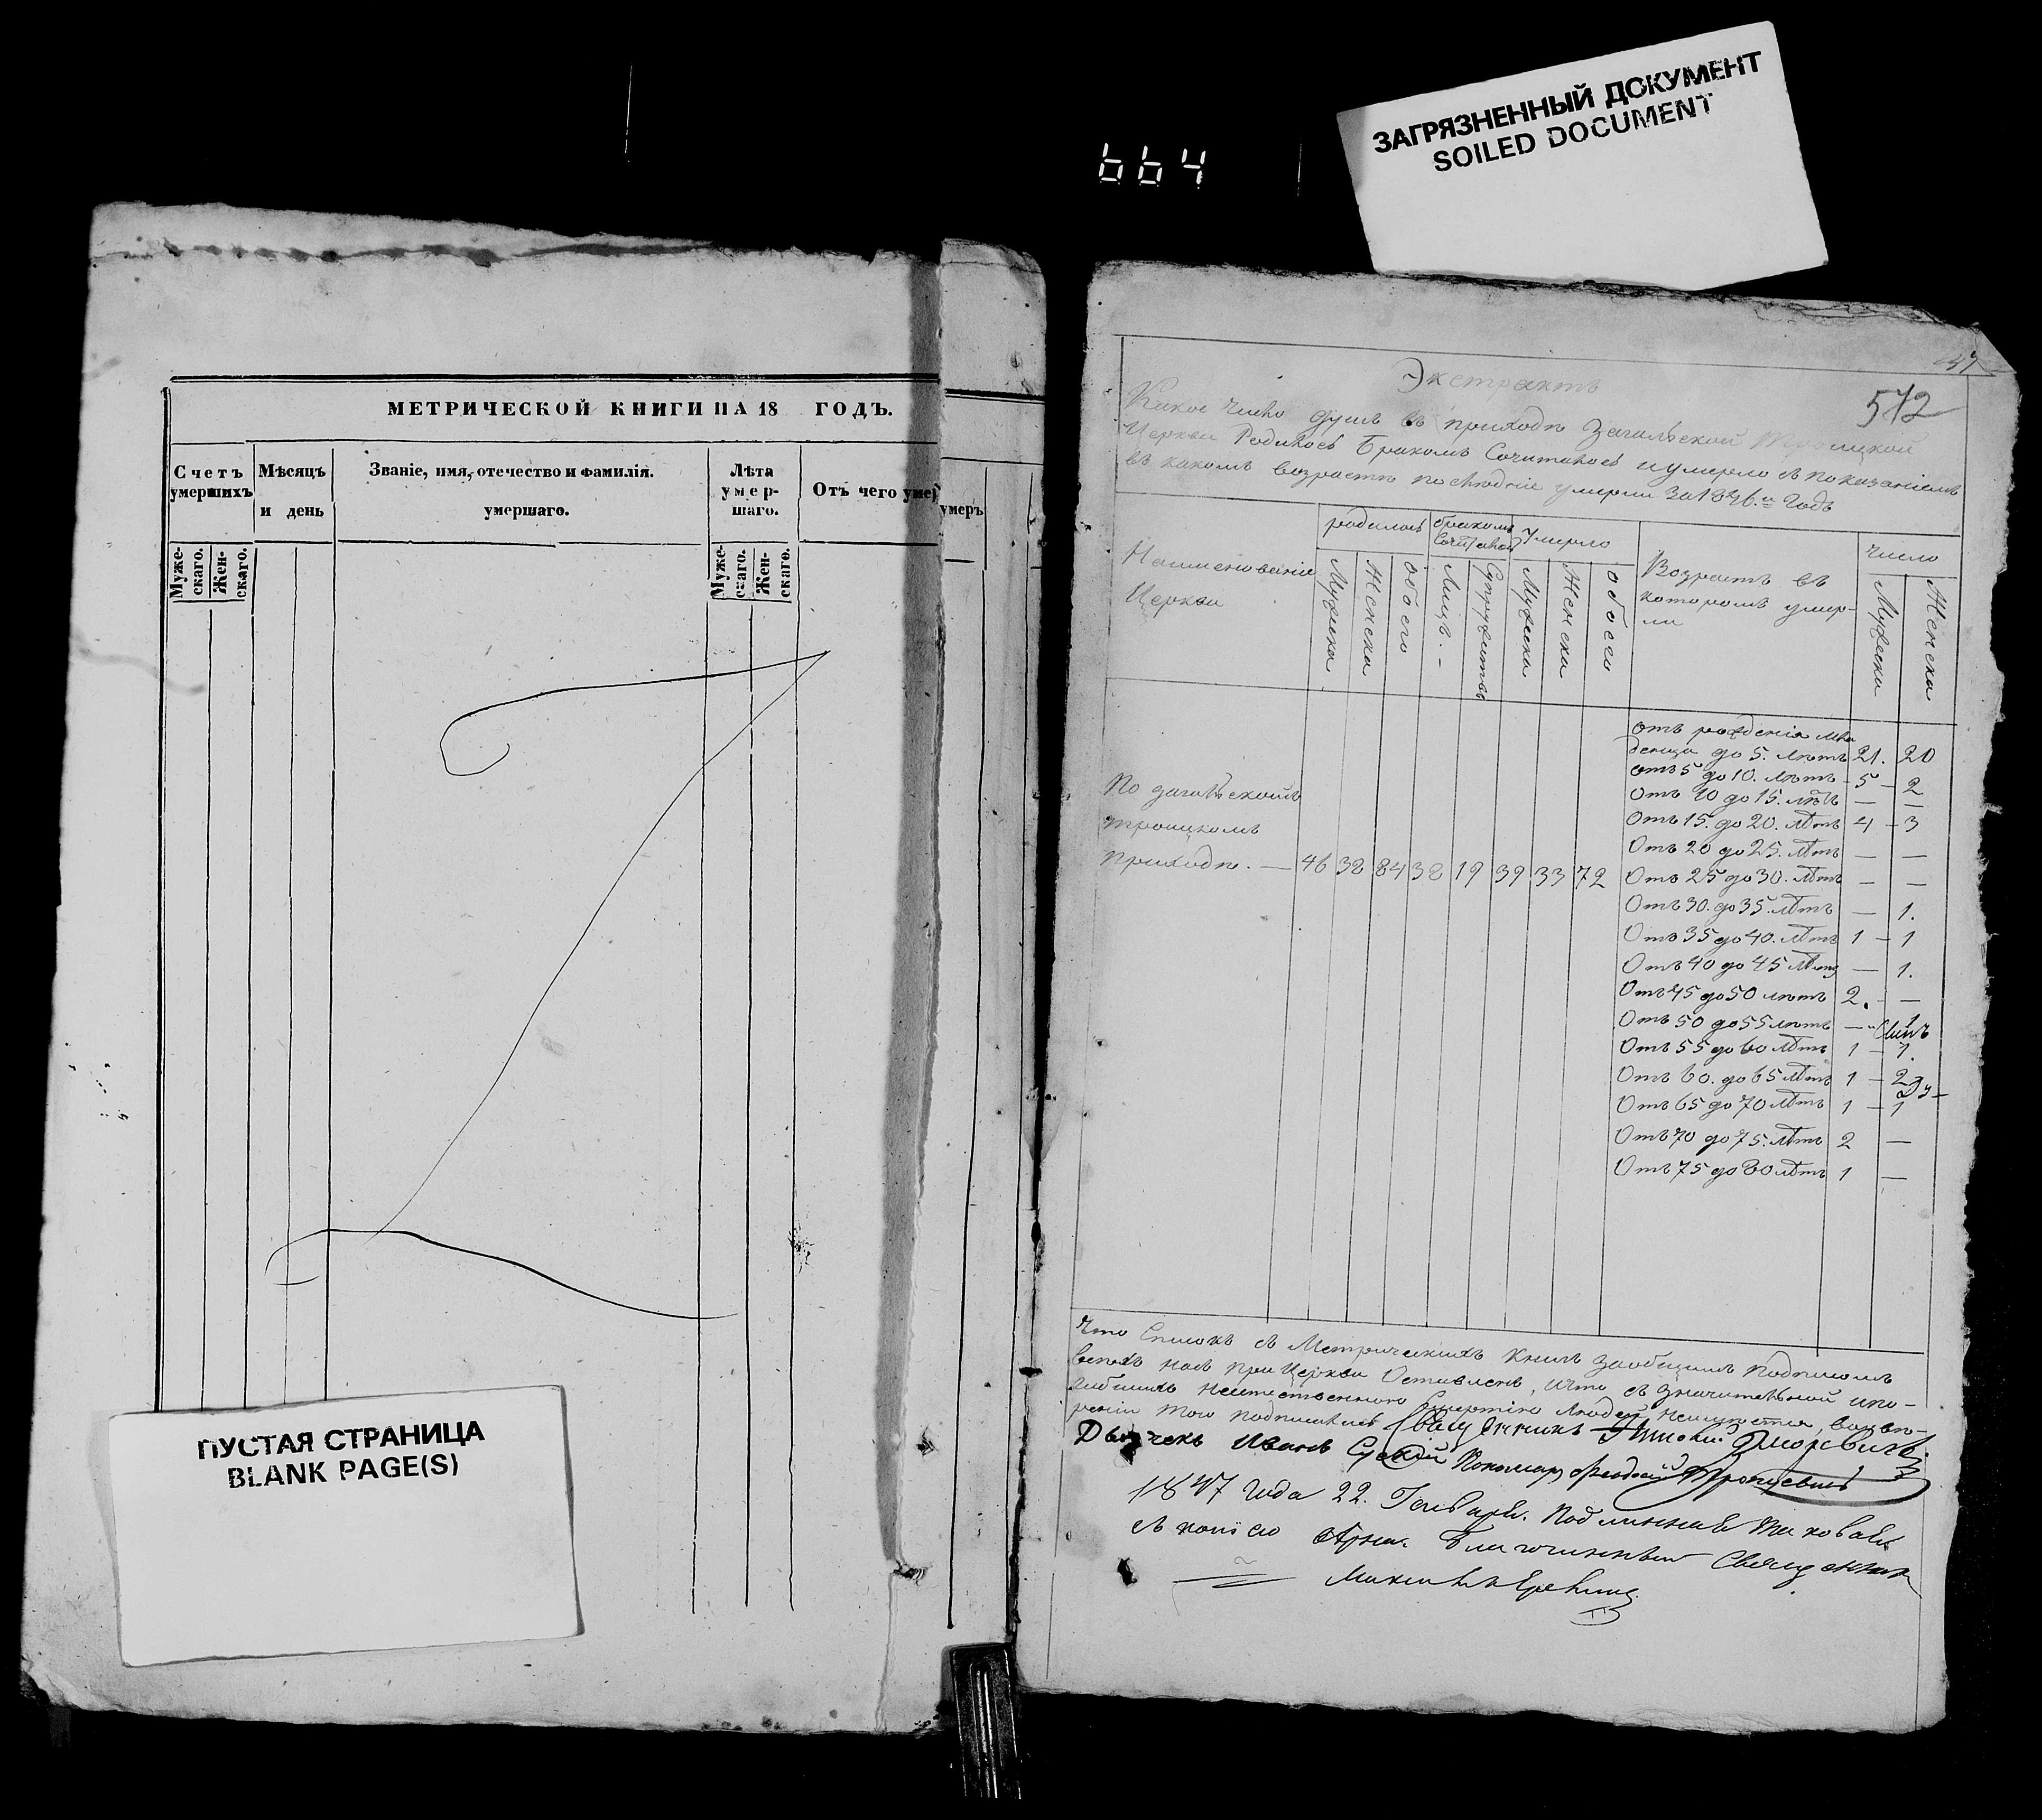 664
ЗАГРЯЗНЕННЫЙ ДОКУМЕНТ
SOILED DOCUMENT
МЕТРИЧЕСКОЙ КНИГИ НА 18 ГОДЪ.
Счетъ умершихъ
Мѣсяцъ и день
Званіе, имя, отечество и фамилія.
умершаго.
Лѣта умер-шаго.
Отъ чего умер
умеръ
Муже-скаго.
Жен-скаго.
Муже-скаго.
Жен-скаго.
ПУСТАЯ СТРАНИЦА
BLANK PAGE(S)
572
Экстрактъ
Какое число душъ въ приходѣ Загальской Троицкой
Церкви Родилось Бракомъ Сочиталось и умерло съ показаніемъ
въ какомъ возрастѣ послѣдніе умерли за 1846.й Годъ
Наименованіе
Церкви
родилось
бракомъ
Сочталось
Умерло
Возрастъ въ
которомъ умер-
ли
Число
Мужска
Женска
обоего
Лицъ. -
Супружествъ
Мужска
Женска
обоего
Мужска
Женска
отъ рожденія мла
денца до 5. лѣтъ 21. 20
отъ 5 до 10. лѣтъ - 5 - 2
Отъ 10 до 15. лѣтъ — —
Отъ 15. до 20. лѣтъ 4 - 3
Отъ 20 до 25. лѣтъ — —
По загальскомъ
троицкомъ
приходѣ. — 46 38 84 38 19 39 33 72
Отъ 25 до 30. лѣтъ — —
Отъ 30. до 35. лѣтъ — 1.
Отъ 35 до 40. лѣтъ 1 - 1
Отъ 40 до 45 лѣтъ — 1.
Отъ 45 до 50 лѣтъ 2. - —
Отъ 50 до 55 лѣтъ — 1
Отъ 55 до 60 лѣтъ 1 - 1.
Отъ 60. до 65 лѣтъ 1 - 2
Отъ 65 до 70 лѣтъ 1 - 1
Отъ 70 до 75. лѣтъ 2 —
Отъ 75 до 80 лѣтъ 1 —
Что Списокъ съ Метрическихъ Книгъ заобщимъ подписомъ
всѣхъ насъ при Церкви Оставленъ, и что съ значительной
неестественною Смертію людей неимѣется,
того подписались Священникъ
Дьячекъ Иванъ Пономарь Феодоръ
1847 года 22. Генваря. Подлинная таковая
съ копіею вѣрна. Благочинный Священникъ